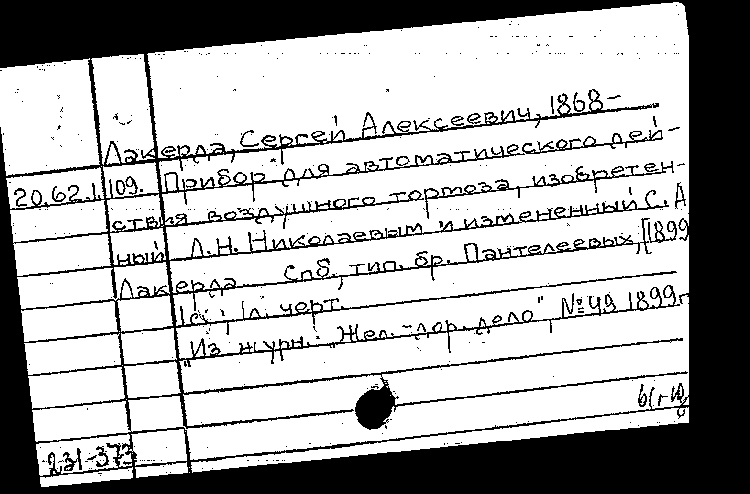 Лакерда, Сергей Алексеевич, 1868-
20.62.1.109. Прибор для автоматического дей-
ствия воздушного тормоза, изобретен-
ный Л.Н. Николаевым и измененный С. А
Лакерда. Спб., тип. бр. Пантелеевых, [1899
1с.; 1л. черт.
"Из журн.: "Жел.-дор. дело", №49 1899г
231-373